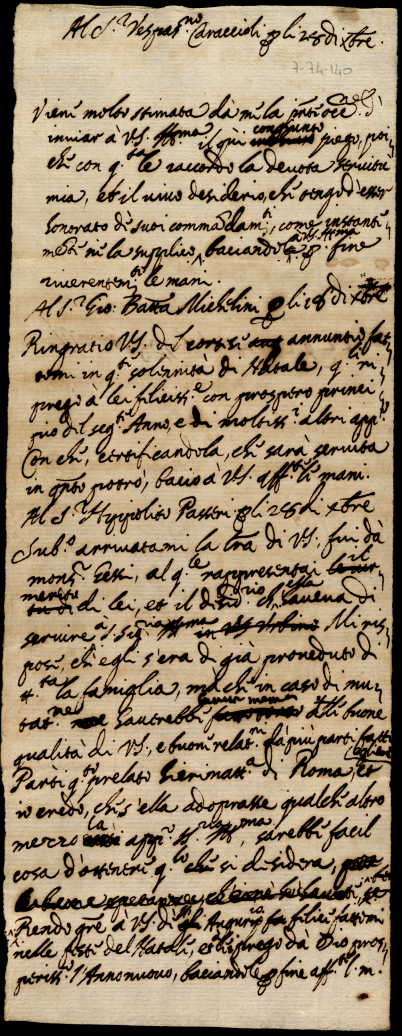 Al S.r Vespas.no Caraccioli p li 28 di Xbre.
7-74-140
Viene molto stimata da me la
inviar à VS. Ill.ma il qui congiunto piego, poi
che con q.ta le raccordo la devota servitù
mia, et il vivo desiderio, che tengo d'esser
honorato de suoi commãdam.ti, come instante
mẽte me la supplico, baciandole p fine
riverentem.te le mani.
Al S.r Gio: Batta Michelini p li 28 di Xbre
Ringratio VS. del annuntio fat
tomi in q.ta solennità di Natale, q.le m
prego à lei feliciss.e con prospero princi
pio del seg.te Anno, e di moltiss.i altri app.o
Con che, certificandola, che sarà servita
in q.nto potrò, bacio à VS. aff.te le mani.
Al S.r Hippolito Passeri p li 28 di Xbre
Sub.o arrivatami la lr̃a di VS., fui da
mons.r Gessi, al q.le rappresentai il
merito di lei, et il desid.rio ch'essa haveva di
servire à S. Sig.ria Ill.ma Mi ris
pose, ch'egli s'era di già proveduto di
t.ta la famiglia, ma che in caso di mu
tat.ne havrebbe havuto mem.a delle buone
qualità di VS., e buone relat.ni da più parti fatteli
Partì q.to prelato hierimatt.a di Roma, et
io credo, che s'ella adoprasse qualche altro
mezzo app.o S. S.ria Ill.ma, sarebbe facil
cosa d'ottenere q.lo che si desidera,
Rendo gr̃e à VS. de gli Augurii felici fattomi
nelle feste del Natale, e le prego da Dio pros
periss.o l'Anno nuovo, baciandole p fine aff.te l. m.